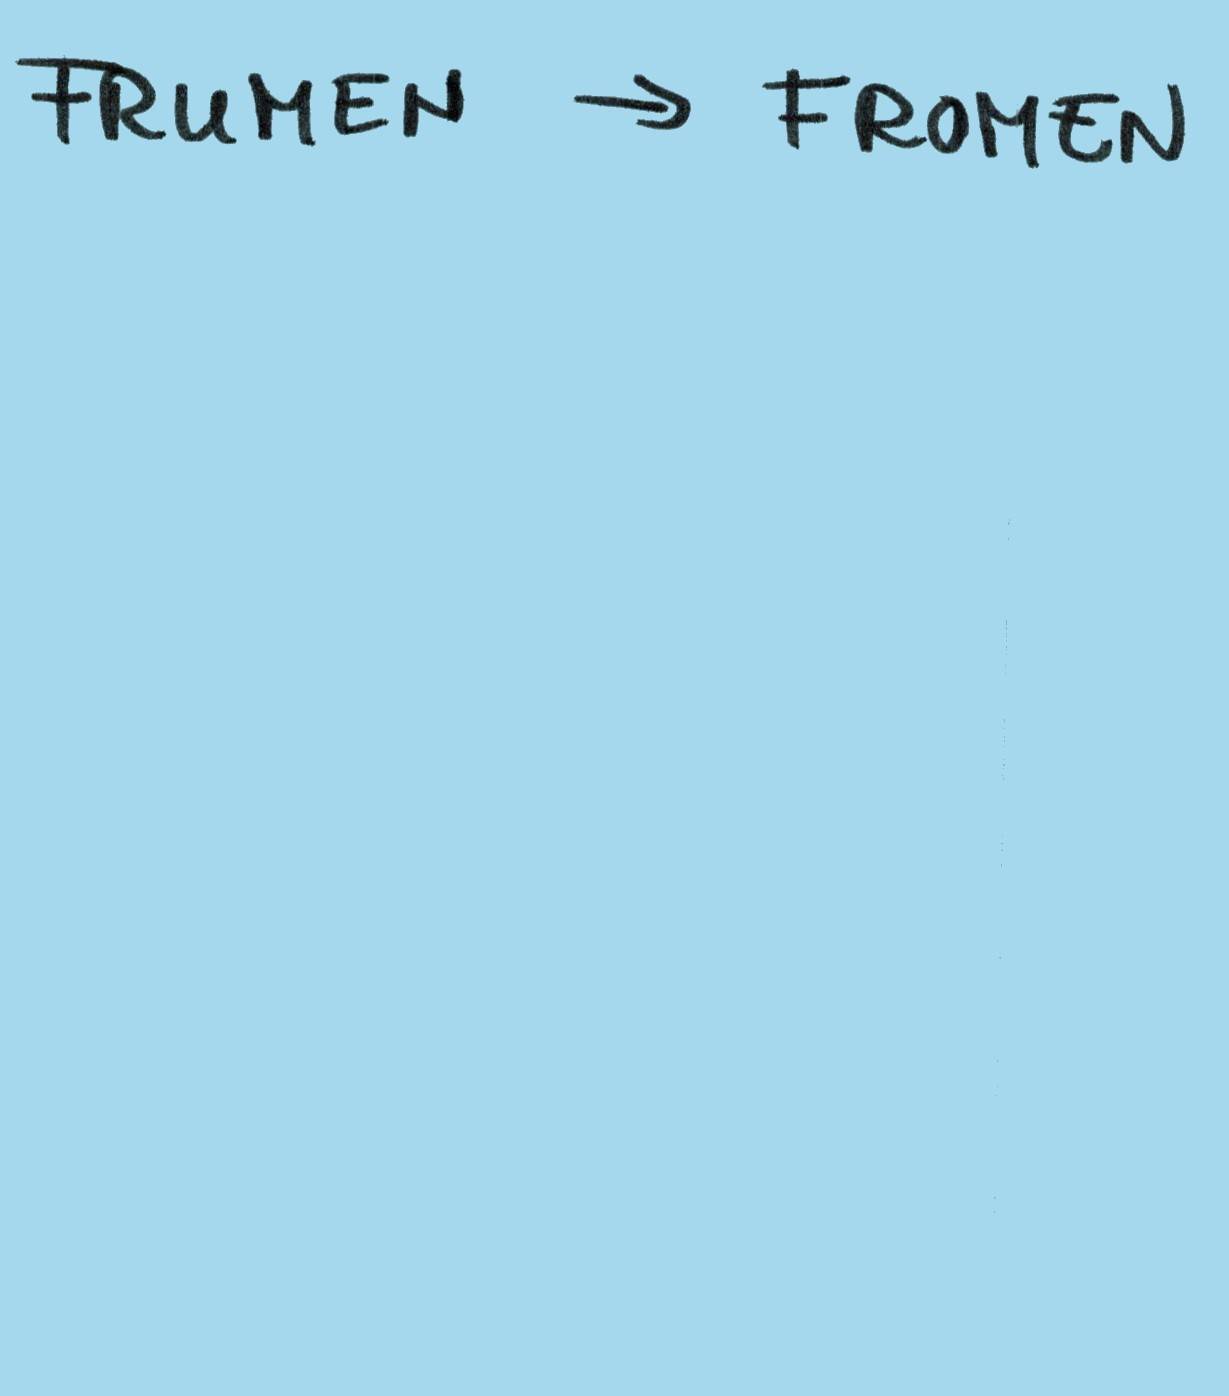 FRUMEN → FROMEN